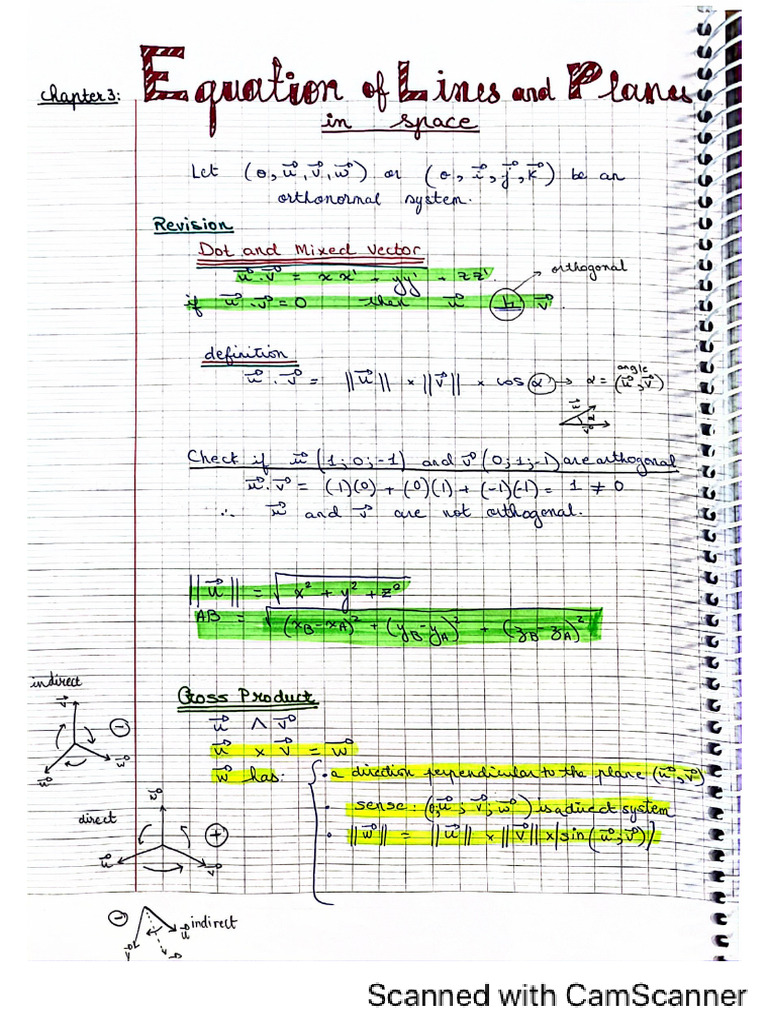 Chapter 3: Equation of Lines and Planes
in space
Let (o, u⃗, v⃗, w⃗) or (o, i⃗, j⃗, k⃗) be an
orthonormal system.
Revision
Dot and Mixed Vector
u⃗.v⃗ = xx' + yy' + zz'
orthogonal
if u⃗.v⃗ = 0 then u⃗ ⊥ v⃗.
definition
u⃗.v⃗ = ||u⃗|| × ||v⃗|| × cos α → α = (u⃗,v⃗)
angle
u⃗
α
v⃗
Check if u⃗(1; 0; -1) and v⃗(0; 1; -1) are orthogonal
u⃗.v⃗ = (1)(0) + (0)(1) + (-1)(-1) = 1 ≠ 0
∴ u⃗ and v⃗ are not orthogonal.
||u⃗|| = √(x² + y² + z²)
AB = √((xB-xA)² + (yB-yA)² + (zB-zA)²)
indirect
v⃗
-
u⃗
w⃗
Cross Product
u⃗ ∧ v⃗
u⃗ × v⃗ = w⃗
w⃗ has: { • a direction perpendicular to the plane (u⃗,v⃗)
• sense: (o;u⃗, v⃗; w⃗) is a direct system
• ||w⃗|| = ||u⃗|| × ||v⃗|| × |sin(u⃗;v⃗)|
direct
w⃗
+
u⃗
v⃗
-
u⃗ indirect
v⃗
Scanned with CamScanner